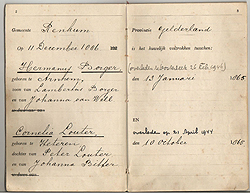 Gemeente Renkum
Op 11 December 1886
Hermannus Borger
geboren te Arnhem,
zoon van Lambertus Borger
en van Johanna van Well
Cornelia Louter
geboren te Heteren
dochter van Peter Louter
en van Johanna
Provincie Gelderland
is het huwelijk voltrokken tusschen:
(overleden te Oosterbeek 26 Feb. 1944)
den 13 Januarie 1865
EN
overleden op 21 April 1944
den 10 October 1865